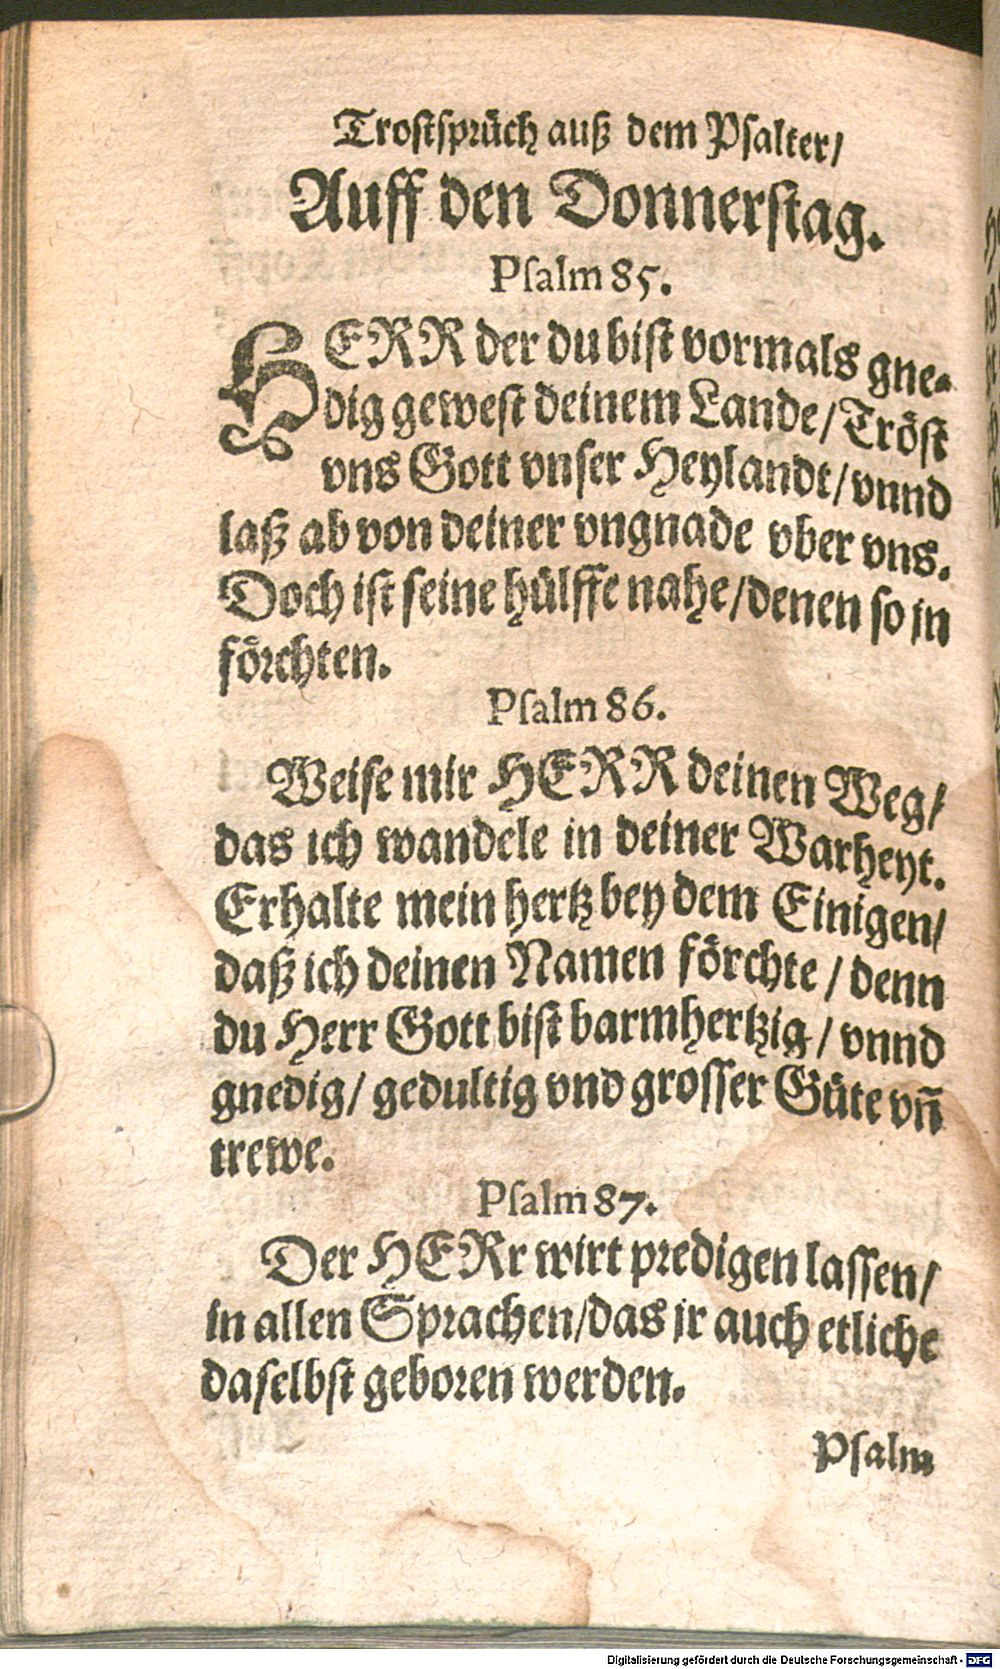 Trostsprüch auß dem Psalter/
Auff den Donnerstag.
Psalm 85.
HERR der du bist vormals gne-
dig gewest deinem Lande/Tröst
vns Gott vnser Heylandt/vnnd
laß ab von deiner vngnade vber vns.
Doch ist seine hülffe nahe/denen so jn
förchten.
Psalm 86.
Weise mir HERR deinen Weg/
das ich wandele in deiner Warheyt.
Erhalte mein hertz bey dem Einigen/
daß ich deinen Namen förchte / denn
du Herr Gott bist barmhertzig / vnnd
gnedig/ gedultig vnd grosser Güte vñ
trewe.
Psalm 87.
Der HERr wirt predigen lassen/
in allen Sprachen/das jr auch etliche
daselbst geboren werden.
Psalm
Digitalisierung gefördert durch die Deutsche Forschungsgemeinschaft - DFG